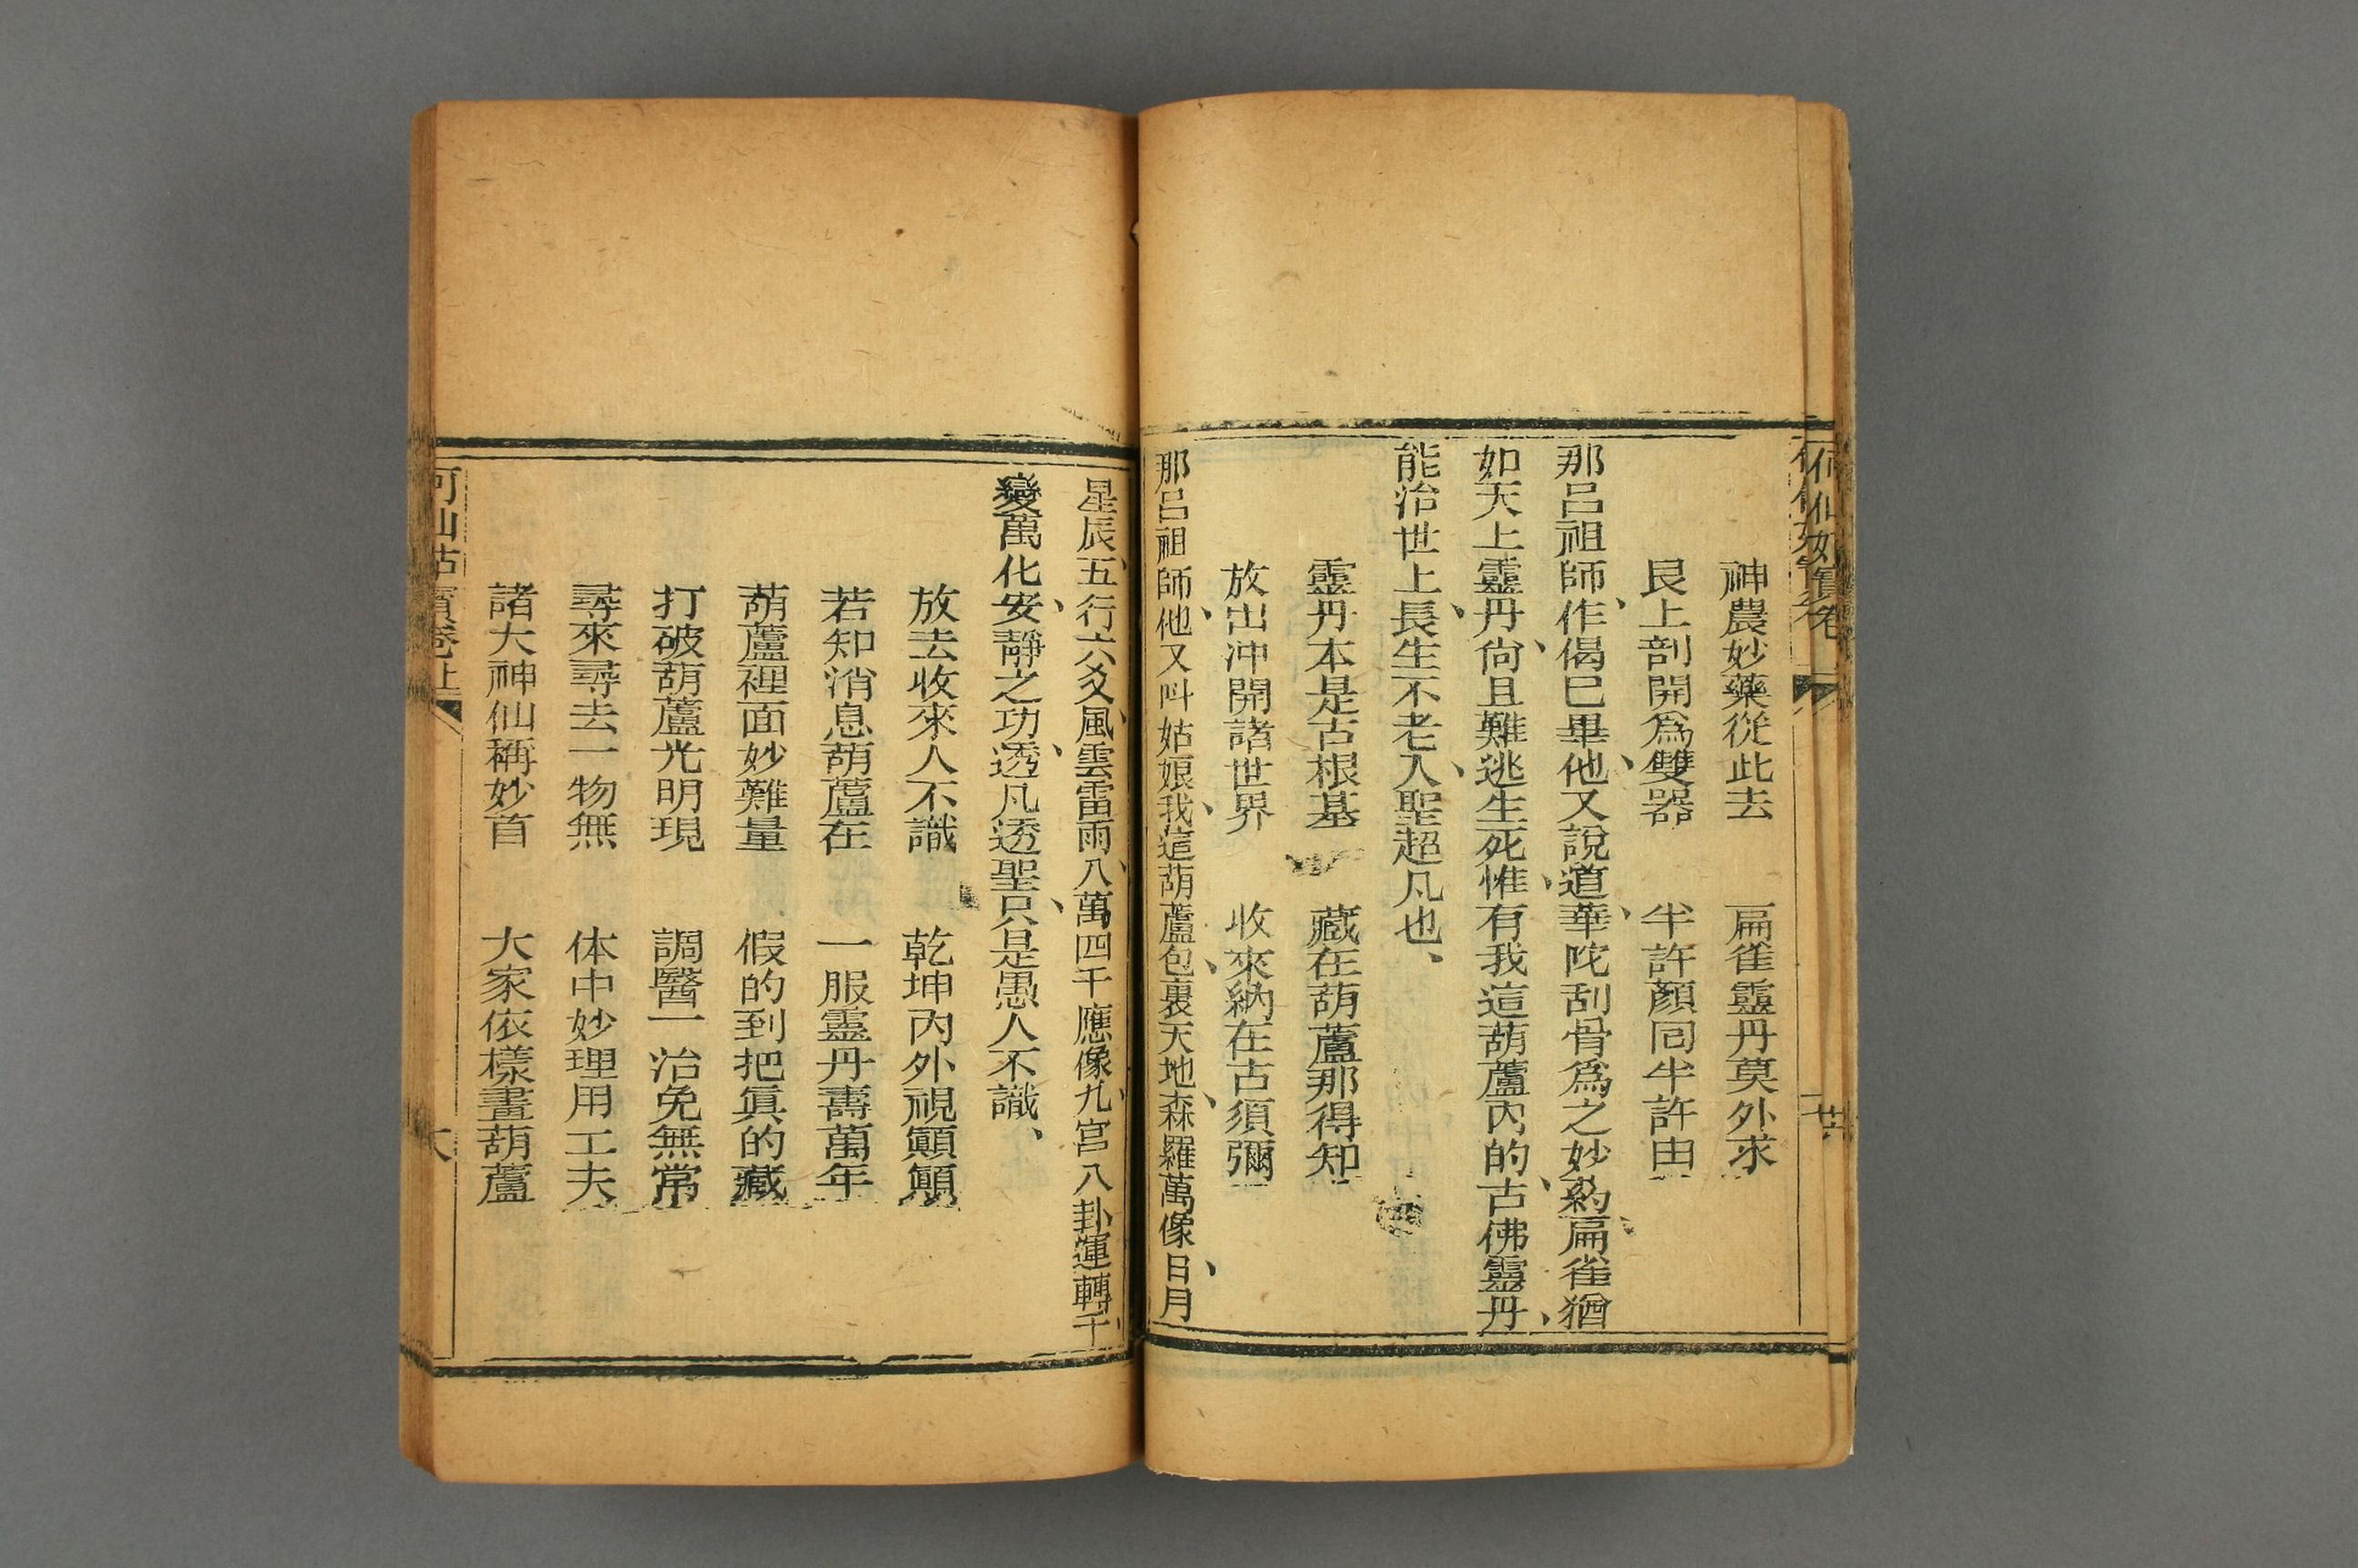 何仙姑寶卷
神農妙藥從此去　扁雀靈丹莫外求
艮上剖開爲雙器　半許顏同半許由
那呂祖師、作偈巳畢、他又說道、華陀刮骨爲之妙約、扁雀猶
如天上靈丹、尙且難逃生死、惟有我這葫蘆內的、古佛靈丹、
能治世上、長生不老、入聖超凡也、
靈丹本是古根基　藏在葫蘆那得知
放出冲開諸世界　收來納在古須彌
那呂祖師、他又叫姑娘、我這葫蘆、包裹天地、森羅萬像、日月
星辰、五行六爻、風雲雷雨、八萬四千應像、九宮八卦、運轉千
變萬化、安靜之功、透凡透聖、只是愚人不識、
放去收來人不識　乾坤內外視顚顚
若知消息葫蘆在　一服靈丹壽萬年
葫蘆裡面妙難量　假的到把眞的藏
打破葫蘆光明現　調醫一治免無常
尋來尋去一物無　体中妙理用工夫
諸大神仙稱妙首　大家依樣畫葫蘆
何仙姑寶卷上